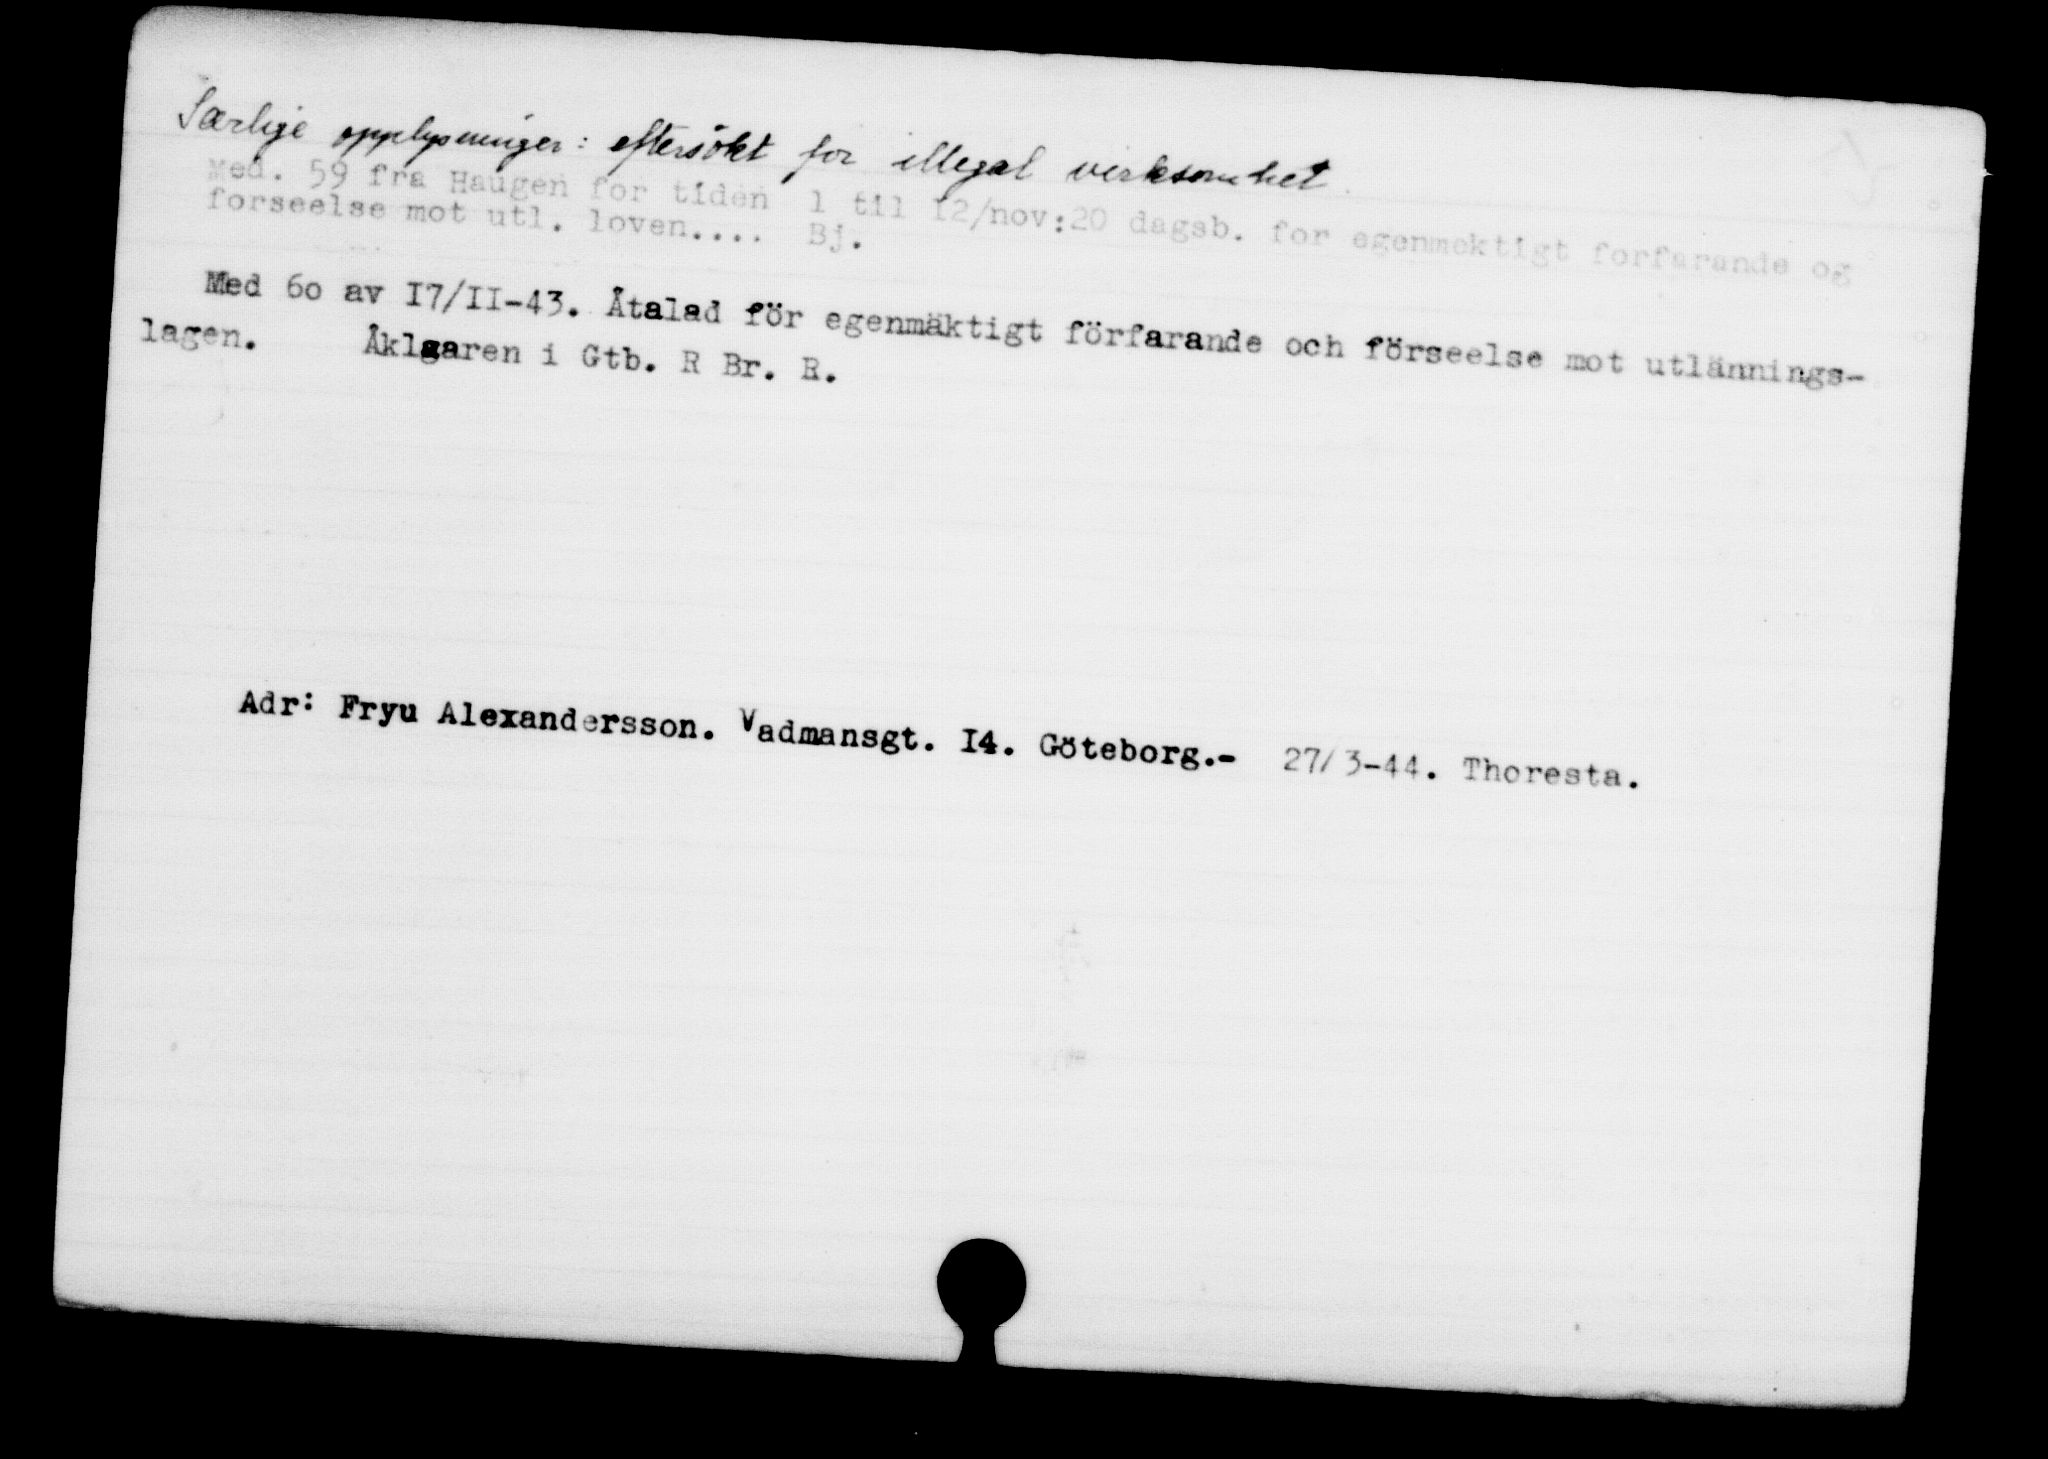 Særlige opplysninger: eftersökt for illegal virksomhet.
Med. 59 fra Haugen for tiden 1 til 12/nov:20 dagsb. for egenmektigt forfarande og
forseelse mot utl. loven.... Bj.
Med 6o av I7/II-43. Åtalad för egenmäktigt förfarande och förseelse mot utlännings-
lagen. Åklgaren i Gtb. R Br. R.
Adr: Fryu Alexandersson. Vadmansgt. I4. Göteborg.- 27/3-44. Thoresta.